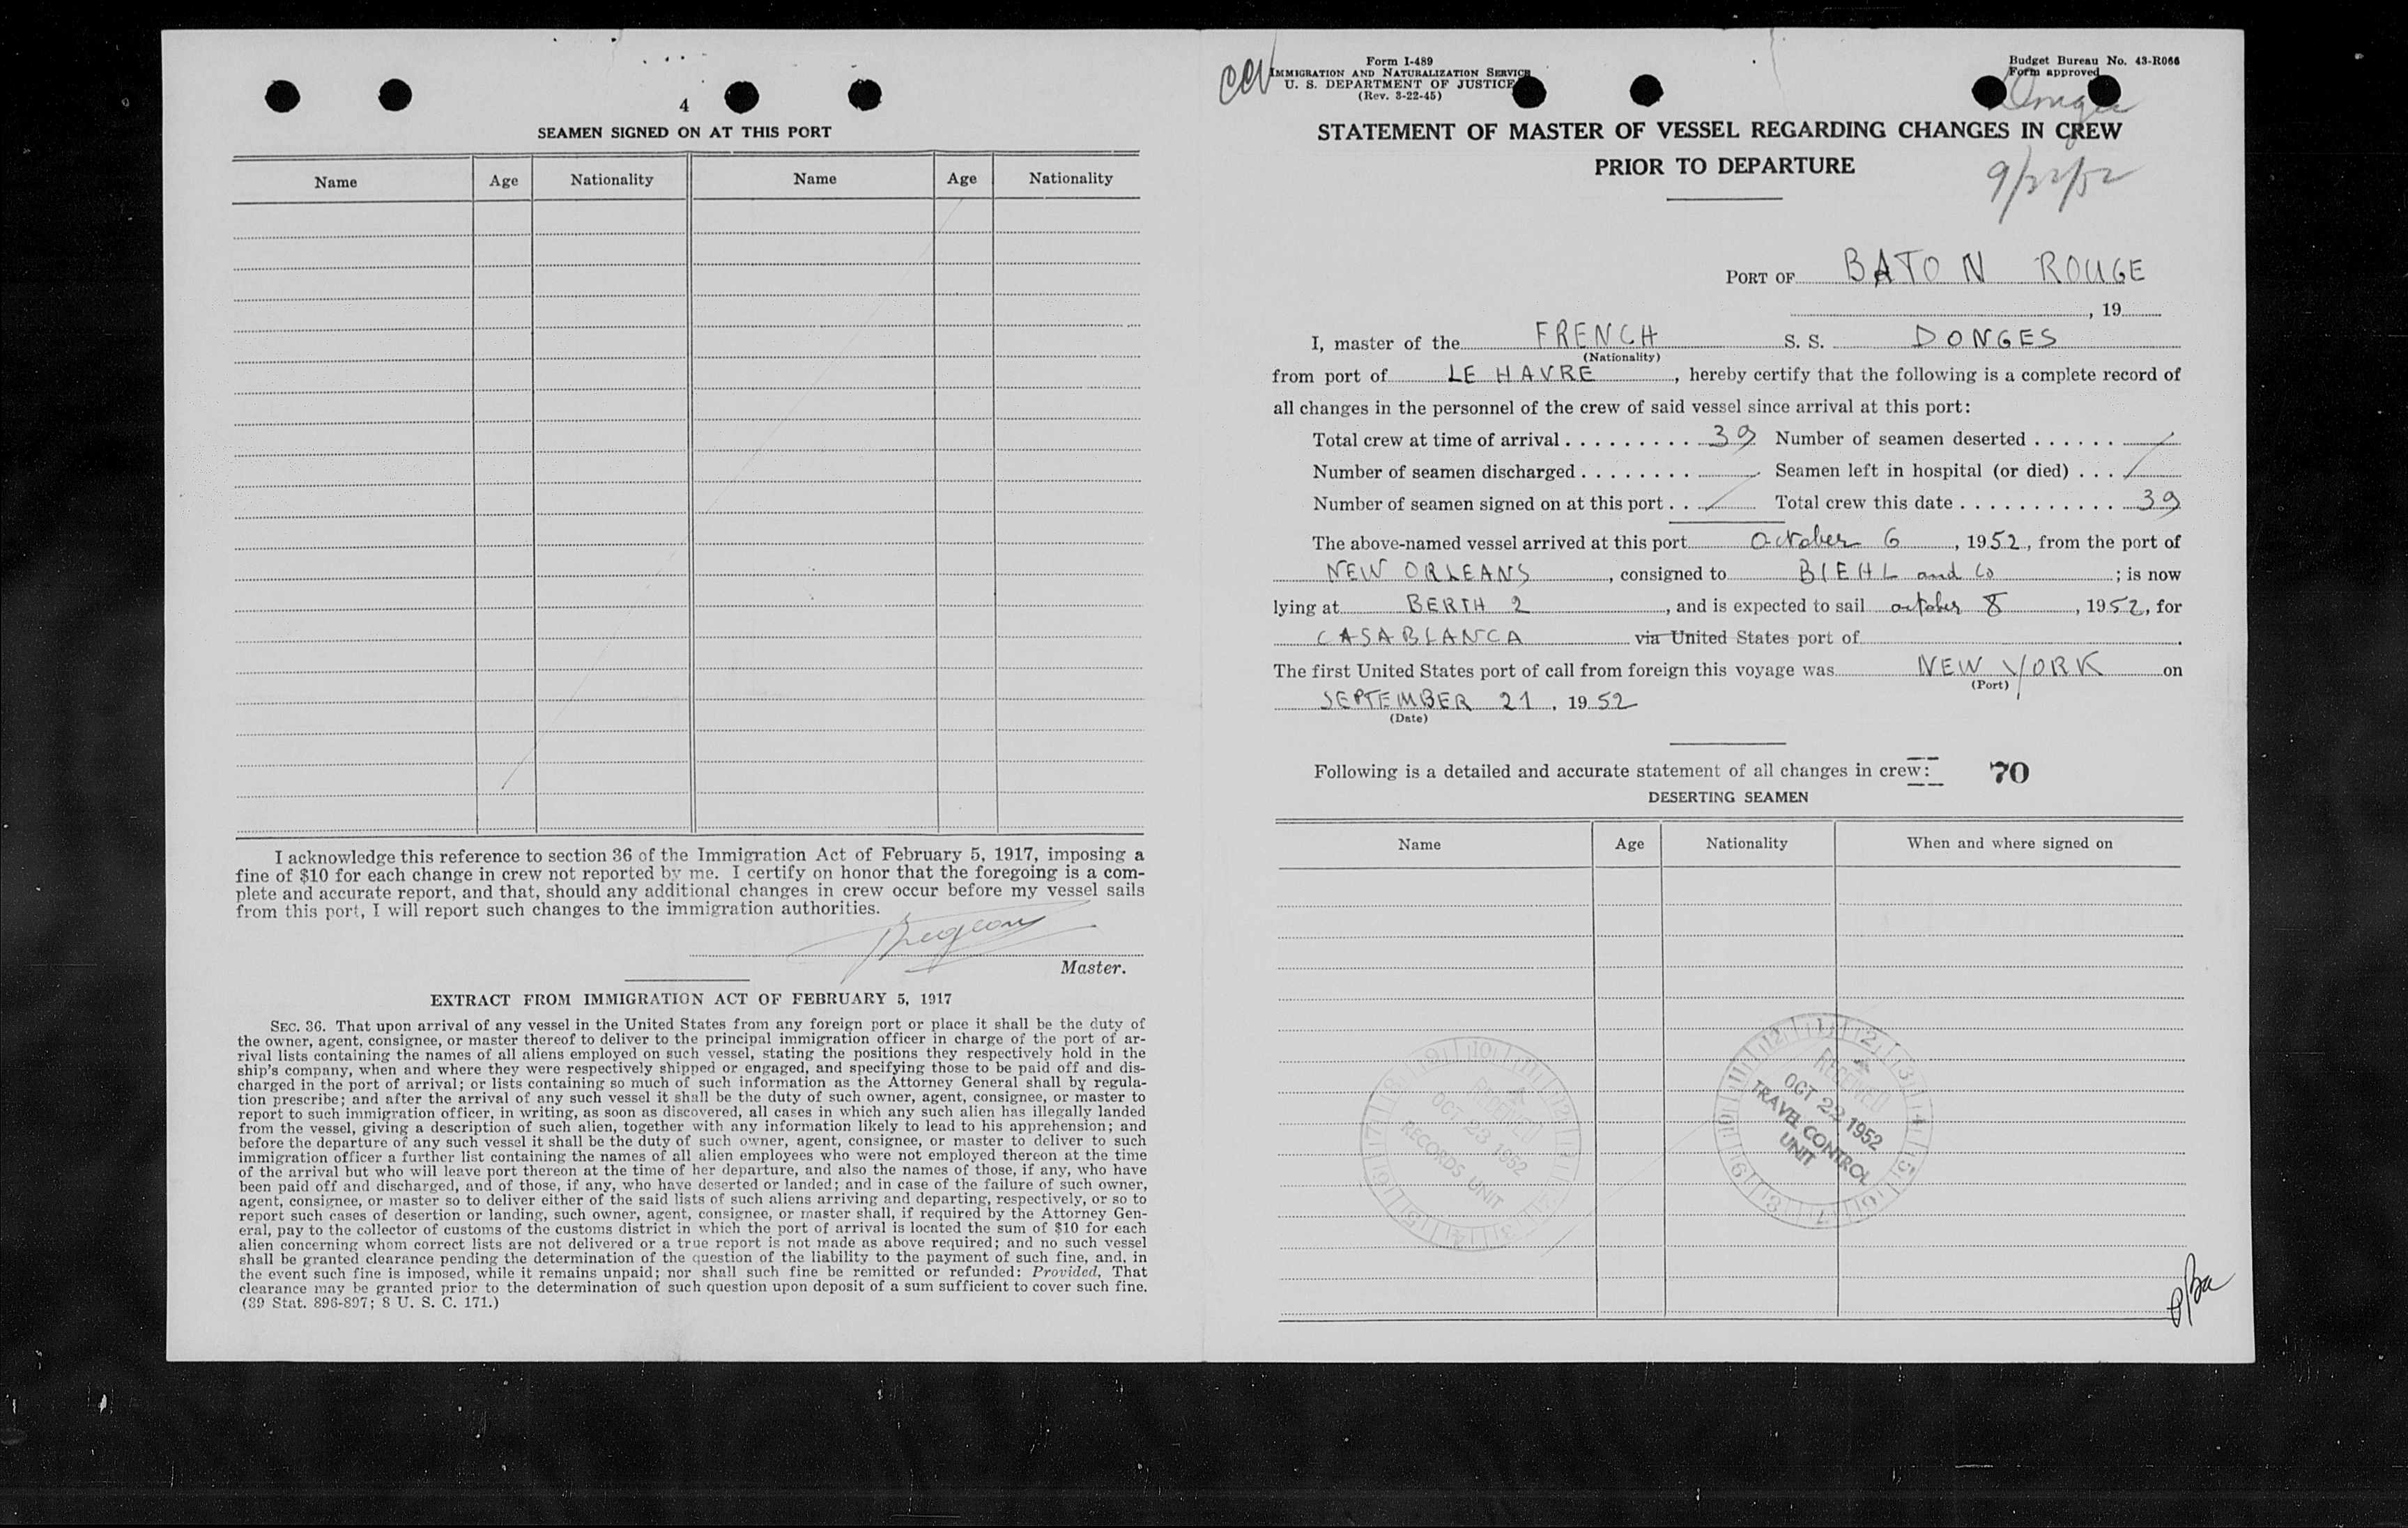 4
SEAMEN SIGNED ON AT THIS PORT
Name Age Nationality Name Age Nationality
I acknowledge this reference to section 36 of the Immigration Act of February 5, 1917, imposing a
fine of $10 for each change in crew not reported by me. I certify on honor that the foregoing is a com-
plete and accurate report, and that, should any additional changes in crew occur before my vessel sails
from this port, I will report such changes to the immigration authorities.
Master.
EXTRACT FROM IMMIGRATION ACT OF FEBRUARY 5, 1917
SEC. 36. That upon arrival of any vessel in the United States from any foreign port or place it shall be the duty of
the owner, agent, consignee, or master thereof to deliver to the principal immigration officer in charge of the port of ar-
rival lists containing the names of all aliens employed on such vessel, stating the positions they respectively hold in the
ship's company, when and where they were respectively shipped or engaged, and specifying those to be paid off and dis-
charged in the port of arrival; or lists containing so much of such information as the Attorney General shall by regula-
tion prescribe; and after the arrival of any such vessel it shall be the duty of such owner, agent, consignee, or master to
report to such immigration officer, in writing, as soon as discovered, all cases in which any such alien has illegally landed
from the vessel, giving a description of such alien, together with any information likely to lead to his apprehension; and
before the departure of any such vessel it shall be the duty of such owner, agent, consignee, or master to deliver to such
immigration officer a further list containing the names of all alien employees who were not employed thereon at the time
of the arrival but who will leave port thereon at the time of her departure, and also the names of those, if any, who have
been paid off and discharged, and of those, if any, who have deserted or landed; and in case of the failure of such owner,
agent, consignee, or master so to deliver either of the said lists of such aliens arriving and departing, respectively, or so to
report such cases of desertion or landing, such owner, agent, consignee, or master shall, if required by the Attorney Gen-
eral, pay to the collector of customs of the customs district in which the port of arrival is located the sum of $10 for each
alien concerning whom correct lists are not delivered or a true report is not made as above required; and no such vessel
shall be granted clearance pending the determination of the question of the liability to the payment of such fine, and, in
the event such fine is imposed, while it remains unpaid; nor shall such fine be remitted or refunded: Provided, That
clearance may be granted prior to the determination of such question upon deposit of a sum sufficient to cover such fine.
(39 Stat. 896-897; 8 U. S. C. 171.)
Form I-489
IMMIGRATION AND NATURALIZATION SERVICE
U. S. DEPARTMENT OF JUSTICE
(Rev. 3-22-45)
Budget Bureau No. 43-R066
Form approved
STATEMENT OF MASTER OF VESSEL REGARDING CHANGES IN CREW
PRIOR TO DEPARTURE
9/22/52
PORT OF BATON ROUGE
, 19
I, master of the FRENCH S. S. DONGES
(Nationality)
from port of LE HAVRE, hereby certify that the following is a complete record of
all changes in the personnel of the crew of said vessel since arrival at this port:
Total crew at time of arrival . . . . . . . . . 39 Number of seamen deserted . . . . . . /
Number of seamen discharged . . . . . . . . Seamen left in hospital (or died) . . . /
Number of seamen signed on at this port . . / Total crew this date . . . . . . . . . . . 39
The above-named vessel arrived at this port October 6, 1952, from the port of
NEW ORLEANS, consigned to BIEHL and Co; is now
lying at BERTH 2, and is expected to sail october 8, 1952, for
CASABLANCA via United States port of .
The first United States port of call from foreign this voyage was NEW YORK on
(Port)
SEPTEMBER 21, 1952
(Date)
Following is a detailed and accurate statement of all changes in crew: 70
DESERTING SEAMEN
Name Age Nationality When and where signed on
RECEIVED
OCT 23 1952
RECORDS UNIT
RECEIVED
OCT 22 1952
TRAVEL CONTROL
UNIT